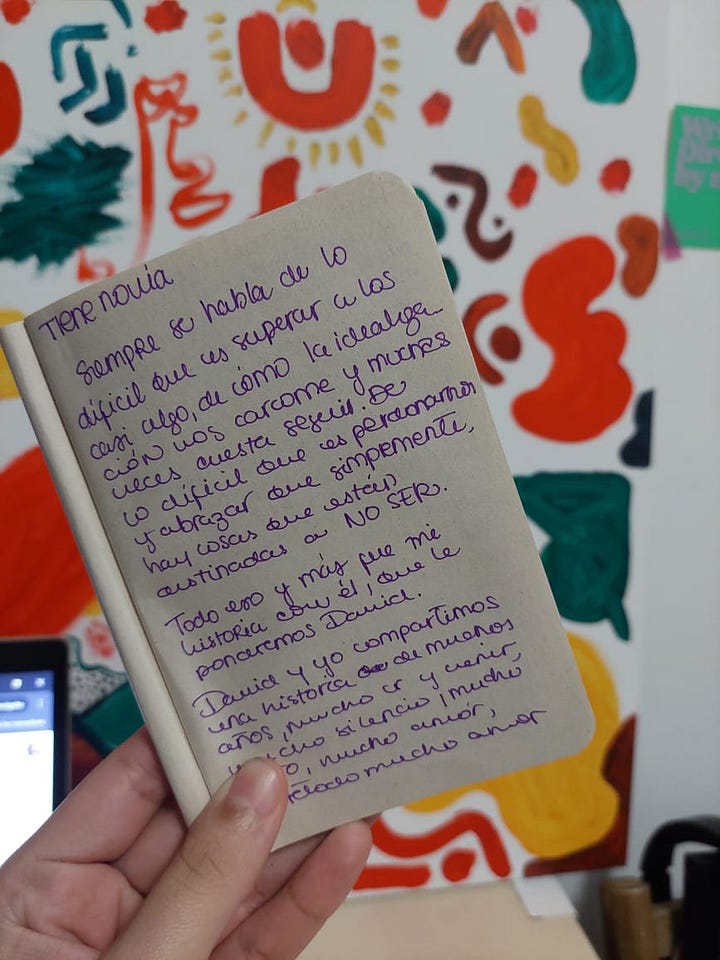 TIENE NOVIA
Siempre se habla de lo
difícil que es superar a los
casi algo, de cómo la idealiza
ción nos carcome y muchas
veces cuesta seguir. De
lo difícil que es perdonarnos
y abrazar que simpemente,
hay cosas que están
destinadas a NO SER.
Todo eso y más fue mi
historia con él, que le
pondremos David.
David y yo compartimos
una historia de muchos
años, mucho ir y venir,
mucho silencio, mucho
mucho amor,
mucho amor